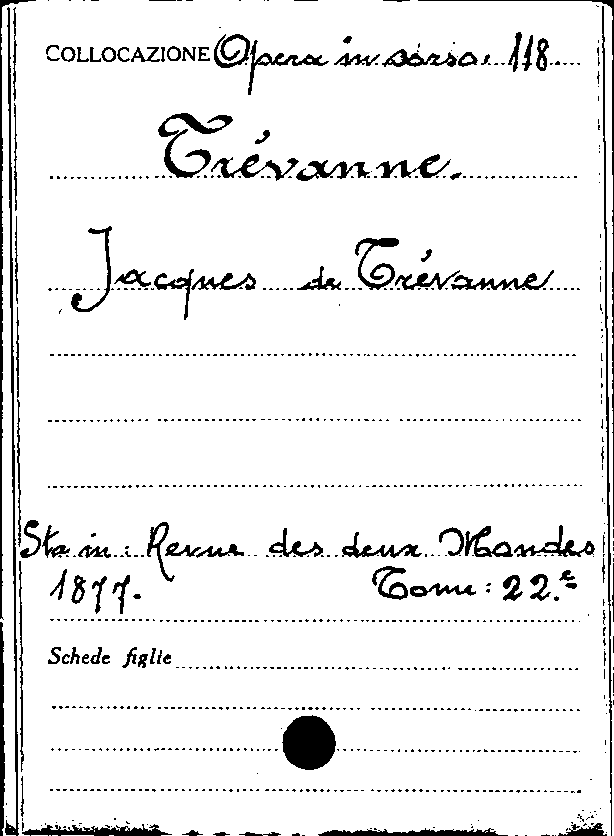 COLLOCAZIONE Opera in corso. 118.
Trévanne.
Jacques de Trévanne
Sta in: Revue des deux Mondes
1877. Tome: 22.e
Schede figlie